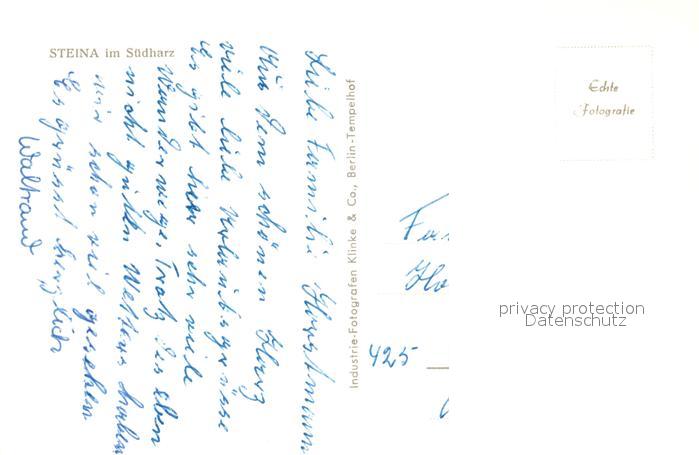 STEINA im Südharz
Liebe Familie Horstmann
Aus dem schönen Harz
viele liebe Urlaubsgrüsse
Es gibt hier sehr viele
Wanderwege. Trotz des eben
nicht guten Wetters haben
wir schon viel gesehen
Es grüsst herzlich
Waltraud
Industrie-Fotografen Klinke & Co., Berlin-Tempelhof
Echte
Fotografie
Fam
Ho
425
privacy protection
Datenschutz